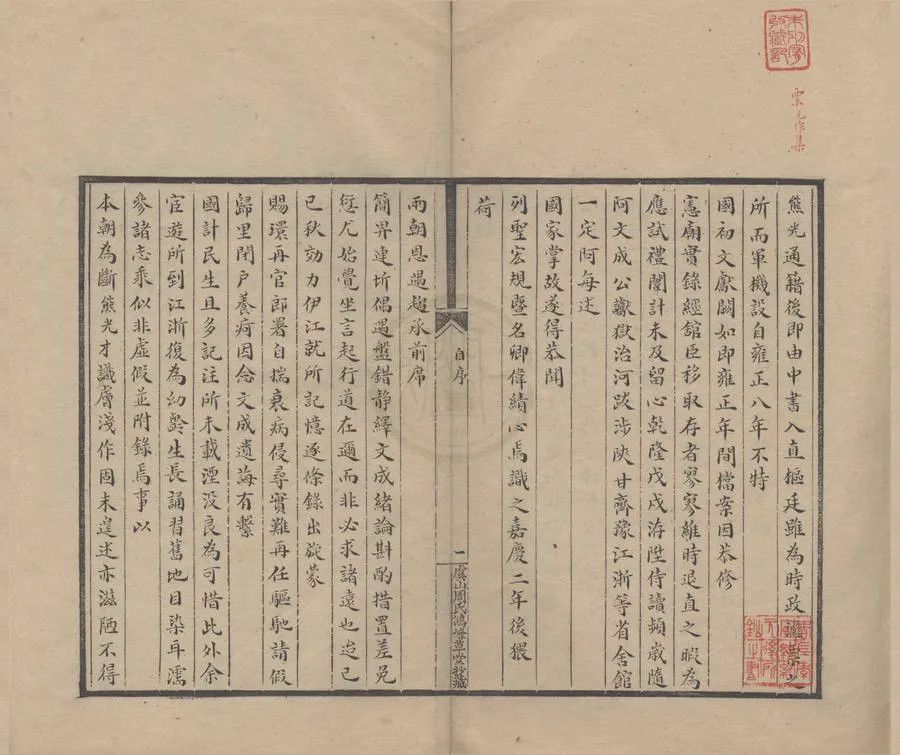 熊光通籍後即由中書入直樞廷雖為時政
所而軍機設自雍正八年不特
國初文獻闕如即雍正年間檔案因恭修
憲廟實錄經館臣移取存者寥寥維時退直之暇為
應試禮闈計未及留心乾隆戊戌洊陞侍讀頻歲隨
阿文成公讞獄治河跋涉陝甘齊豫江浙等省舍館
一定阿每述
國家掌故遂得恭聞
列聖宏規暨名卿偉績心焉識之嘉慶二年後猥
荷
自序
一
虞山周氏鴿峰草堂鈔藏
兩朝恩遇超承前席
簡畀連圻偶遇盤錯靜繹文成緒論斟酌措置差免
愆尤始覺坐言起行道在邇而非必求諸遠也迨己
巳秋効力伊江就所記憶逐條錄出旋蒙
賜環再官郎署自揣衰病侵尋實難再任驅馳請假
歸里閉戶養疴因念文成遺誨有繫
國計民生且多記注所未載湮沒良為可惜此外余
宦遊所到江浙復為幼齡生長誦習舊地目染耳濡
參諸志乘似非虛假並附錄焉事以
本朝為斷熊光才識膚淺作固未遑述亦滋陋不得